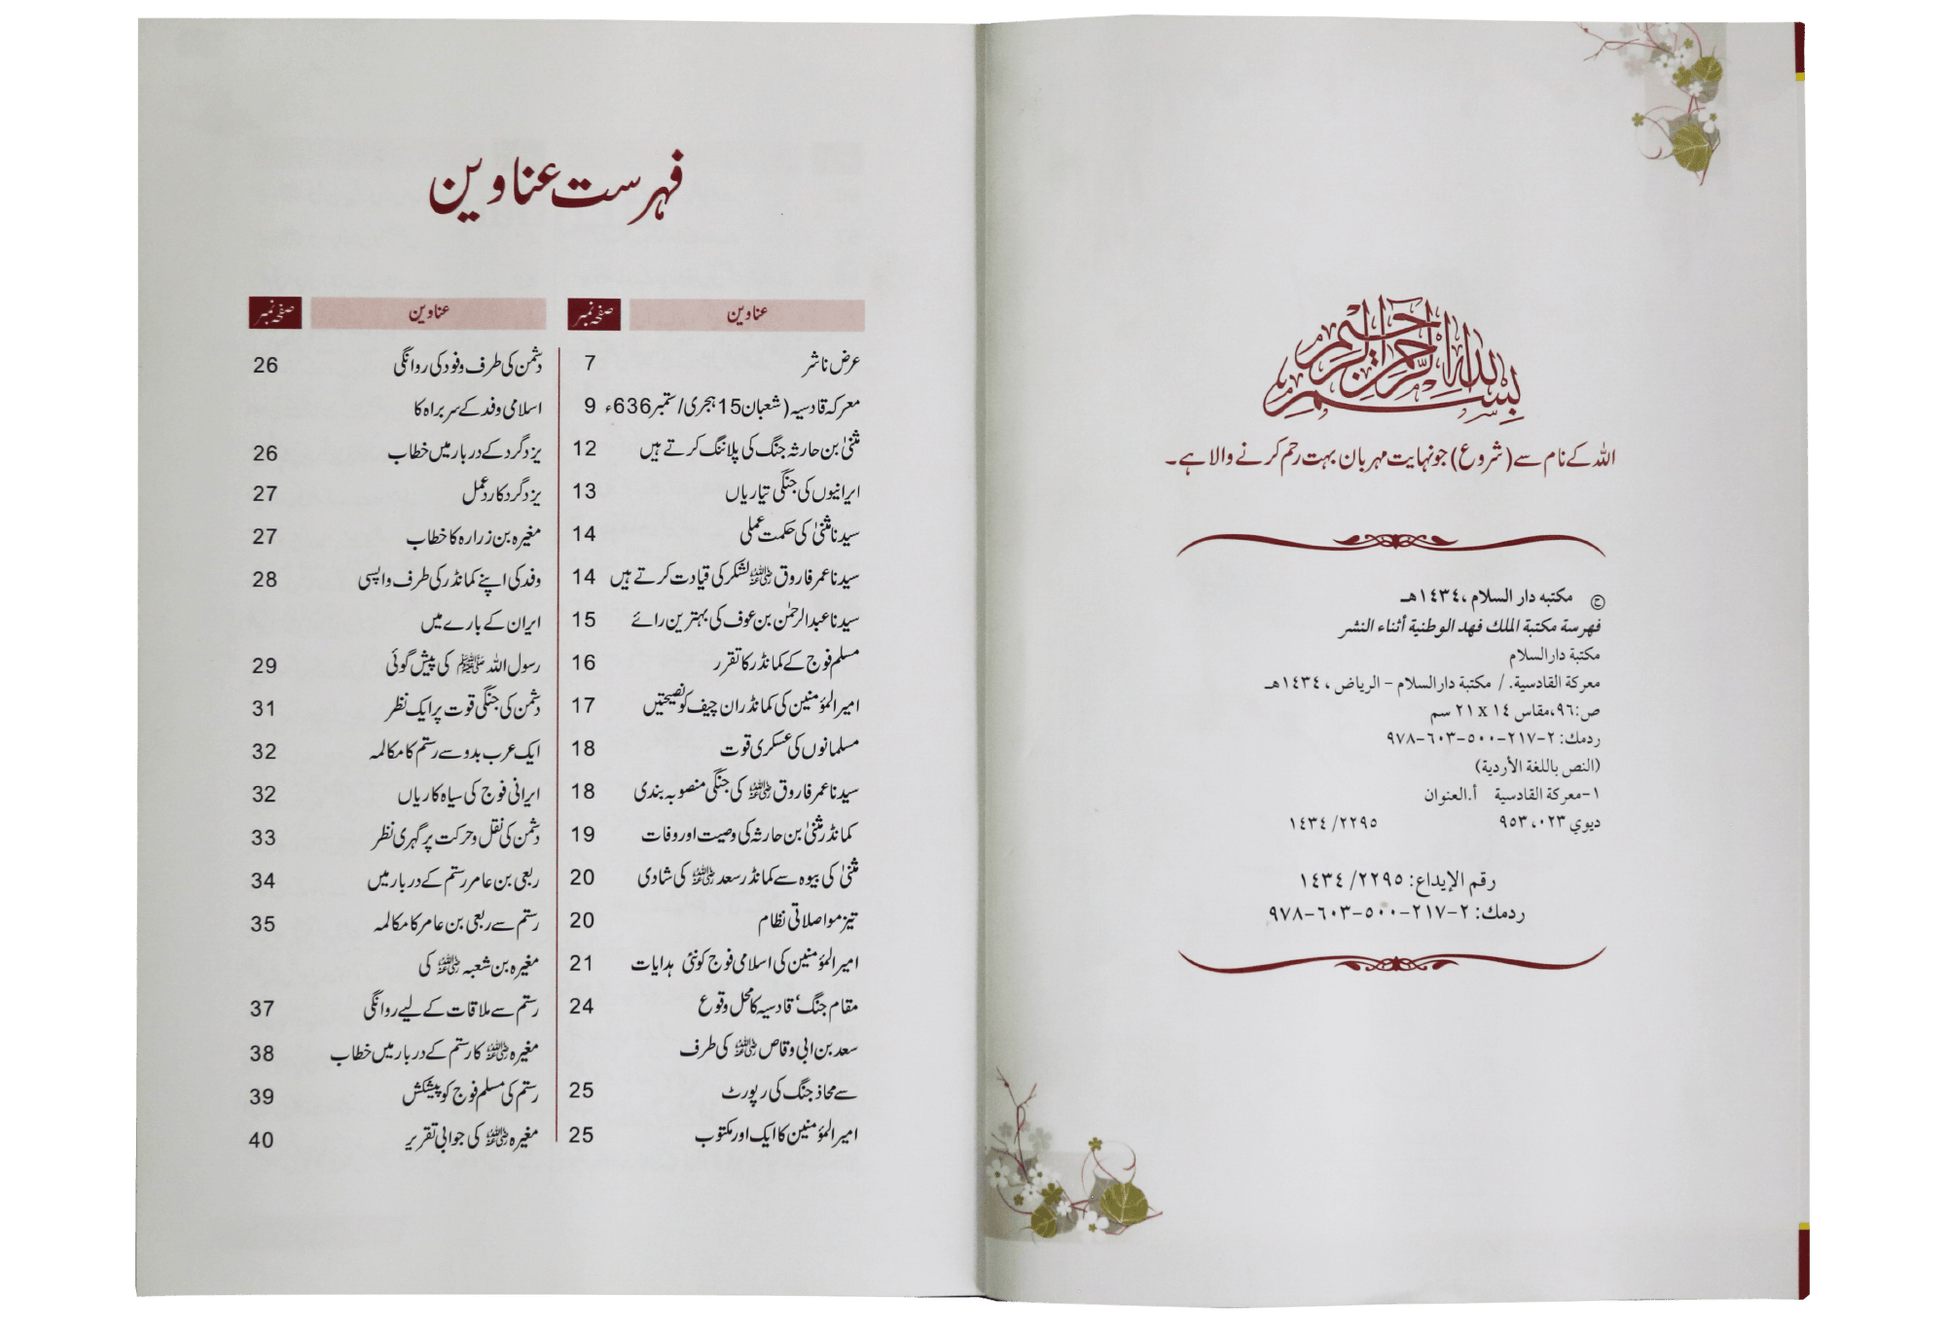 بسم الله الرحمن الرحيم
اللہ کے نام سے (شروع) جو نہایت مہربان بہت رحم کرنے والا ہے۔
ح مكتبه دار السلام ،١٤٣٤هـ
فهرسة مكتبة الملك فهد الوطنية أثناء النشر
مكتبة دارالسلام
معركة القادسية. / مكتبة دارالسلام - الرياض ، ١٤٣٤هـ
ص:٩٦،مقاس ١٤ x ٢١ سم
ردمك: ٢-٢١٧-٥٠٠-٦٠٣-٩٧٨
(النص باللغة الأردية)
١-معركة القادسية أ.العنوان
ديوي ٩٥٣،٠٢٣ ١٤٣٤/٢٢٩٥
رقم الإيداع: ١٤٣٤/٢٢٩٥
ردمك: ٢-٢١٧-٥٠٠-٦٠٣-٩٧٨
فہرست عناوین
عناوین صفحہ نمبر
عرض ناشر 7
معرکہ قادسیہ (شعبان 15 ہجری/ستمبر 636ء 9
مثنیٰ بن حارثہ جنگ کی پلاننگ کرتے ہیں 12
ایرانیوں کی جنگی تیاریاں 13
سیدنا مثنیٰ کی حکمت عملی 14
سیدنا عمر فاروق ﷜ لشکر کی قیادت کرتے ہیں 14
سیدنا عبدالرحمٰن بن عوف کی بہترین رائے 15
مسلم فوج کے کمانڈر کا تقرر 16
امیرالمؤمنین کی کمانڈران چیف کو نصیحتیں 17
مسلمانوں کی عسکری قوت 18
سیدنا عمر فاروق ﷜ کی جنگی منصوبہ بندی 18
کمانڈر مثنیٰ بن حارثہ کی وصیت اور وفات 19
مثنیٰ کی بیوہ سے کمانڈر سعد ﷜ کی شادی 20
تیز مواصلاتی نظام 20
امیرالمؤمنین کی اسلامی فوج کو نئی ہدایات 21
مقام جنگ‘ قادسیہ کا محل وقوع 24
سعد بن ابی وقاص ﷜ کی طرف
سے محاذ جنگ کی رپورٹ 25
امیرالمؤمنین کا ایک اور مکتوب 25
عناوین صفحہ نمبر
دشمن کی طرف وفود کی روانگی 26
اسلامی وفد کے سربراہ کا
یزدگرد کے دربار میں خطاب 26
یزدگرد کا ردعمل 27
مغیرہ بن زرارہ کا خطاب 27
وفد کی اپنے کمانڈر کی طرف واپسی 28
ایران کے بارے میں
رسول اللہ ﷺ کی پیش گوئی 29
دشمن کی جنگی قوت پر ایک نظر 31
ایک عرب بدو سے رستم کا مکالمہ 32
ایرانی فوج کی سیاہ کاریاں 32
دشمن کی نقل و حرکت پر گہری نظر 33
ربعی بن عامر رستم کے دربار میں 34
رستم سے ربعی بن عامر کا مکالمہ 35
مغیرہ بن شعبہ ﷜ کی
رستم سے ملاقات کے لیے روانگی 37
مغیرہ ﷜ کا رستم کے دربار میں خطاب 38
رستم کی مسلم فوج کو پیشکش 39
مغیرہ ﷜ کی جوابی تقریر 40